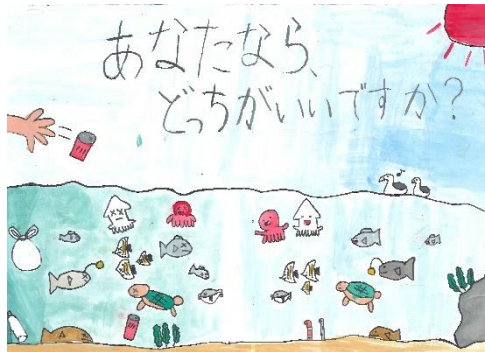 あなたなら、
どっちがいいですか？